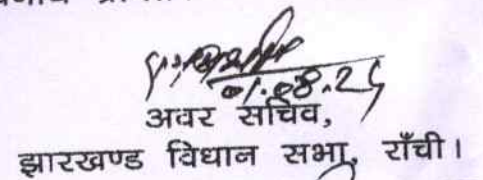 01.08.25
अवर सचिव,
झारखण्ड विधान सभा, राँची।